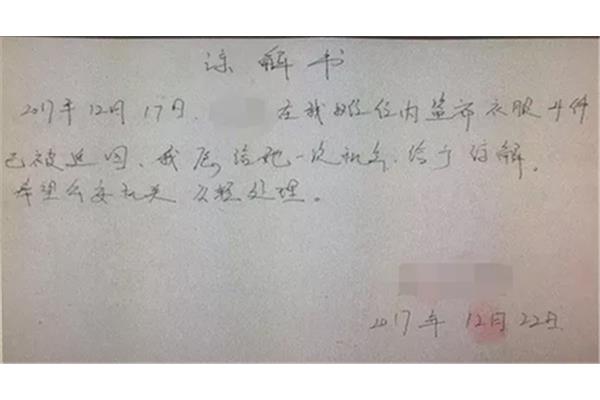 谅解书
2017年12月17日, 在我 位内盗 衣服4件
已被追回、我愿给她一次机会、给予谅解。
希望公安机关从轻处理。
2017年12月22日